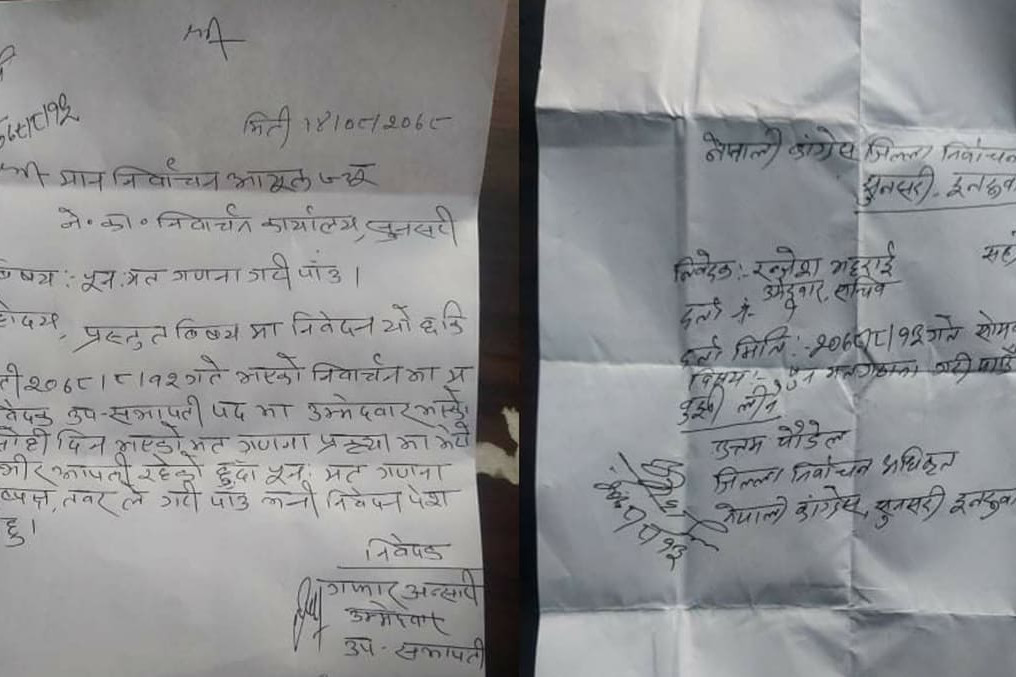 मिती १४/०८/२०७८
श्री मान निर्वाचन आयुक्त ज्यू
ने. का. निर्वाचन कार्यालय, सुनसरी
विषय: पून: मत गणना गरी पांउ ।
होदय,
प्रस्तुत विषय मा निवेदन यो छकि
ती २०७८/८/१२ गते भएको निर्वाचन मा म
वेदक उप-सभापती पद मा उम्मेदवार भएको
सोही दिन भएको मत गणना प्रकृया मा मेरो
आपती रहेको हुदा पून: मत गणना
तवर ले गरी पांउ भनी निवेदन पेश
छु।
निवेदक
गफार अन्सारी
उम्मेदवार
उप-सभापती
नेपाली कांग्रेस जिल्ला निर्वाचन
सुनसरी-इनरुवा
निवेदक:- रन्जेश भट्टराई
उमेद्वार, सचिव
दर्ता नं-
दर्ता मिति:- २०७८/८/१३ गते सोम
विषय:- पुन मतगणना गरी पाउँ
बुझी लीने
उत्तम पौडेल
जिल्ला निर्वाचन अधिकृत
नेपाली कांग्रेस, सुनसरी इनरुवा